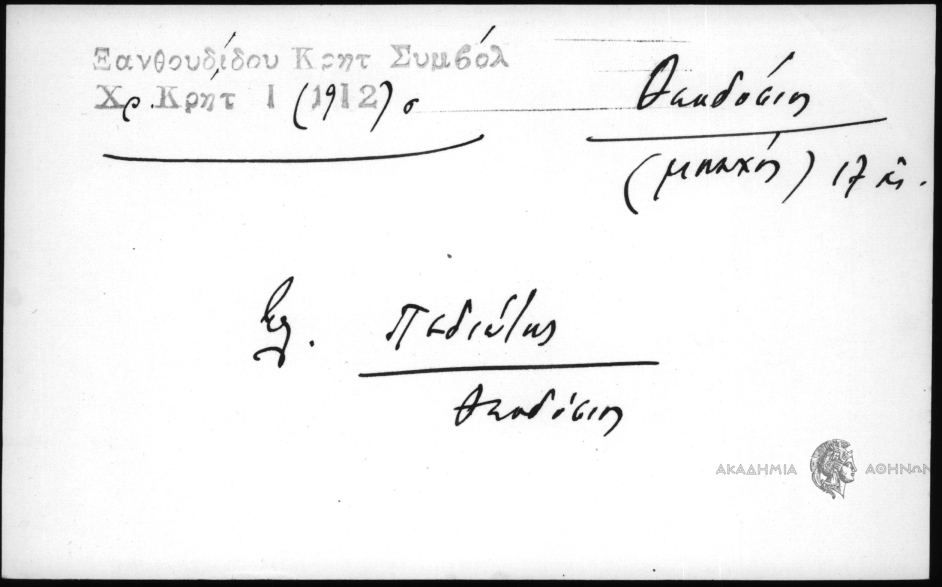 Ξανθουδίδου Κρητ Συμβόλ
Χρ. Κρήτ 1 (1912) σ
Θεοδόσιος
(μοναχός) 17 αι.
Βλ. Πεδιώτης
Θεοδόσιος
ΑΚΑΔΗΜΙΑ ΑΘΗΝΩΝ